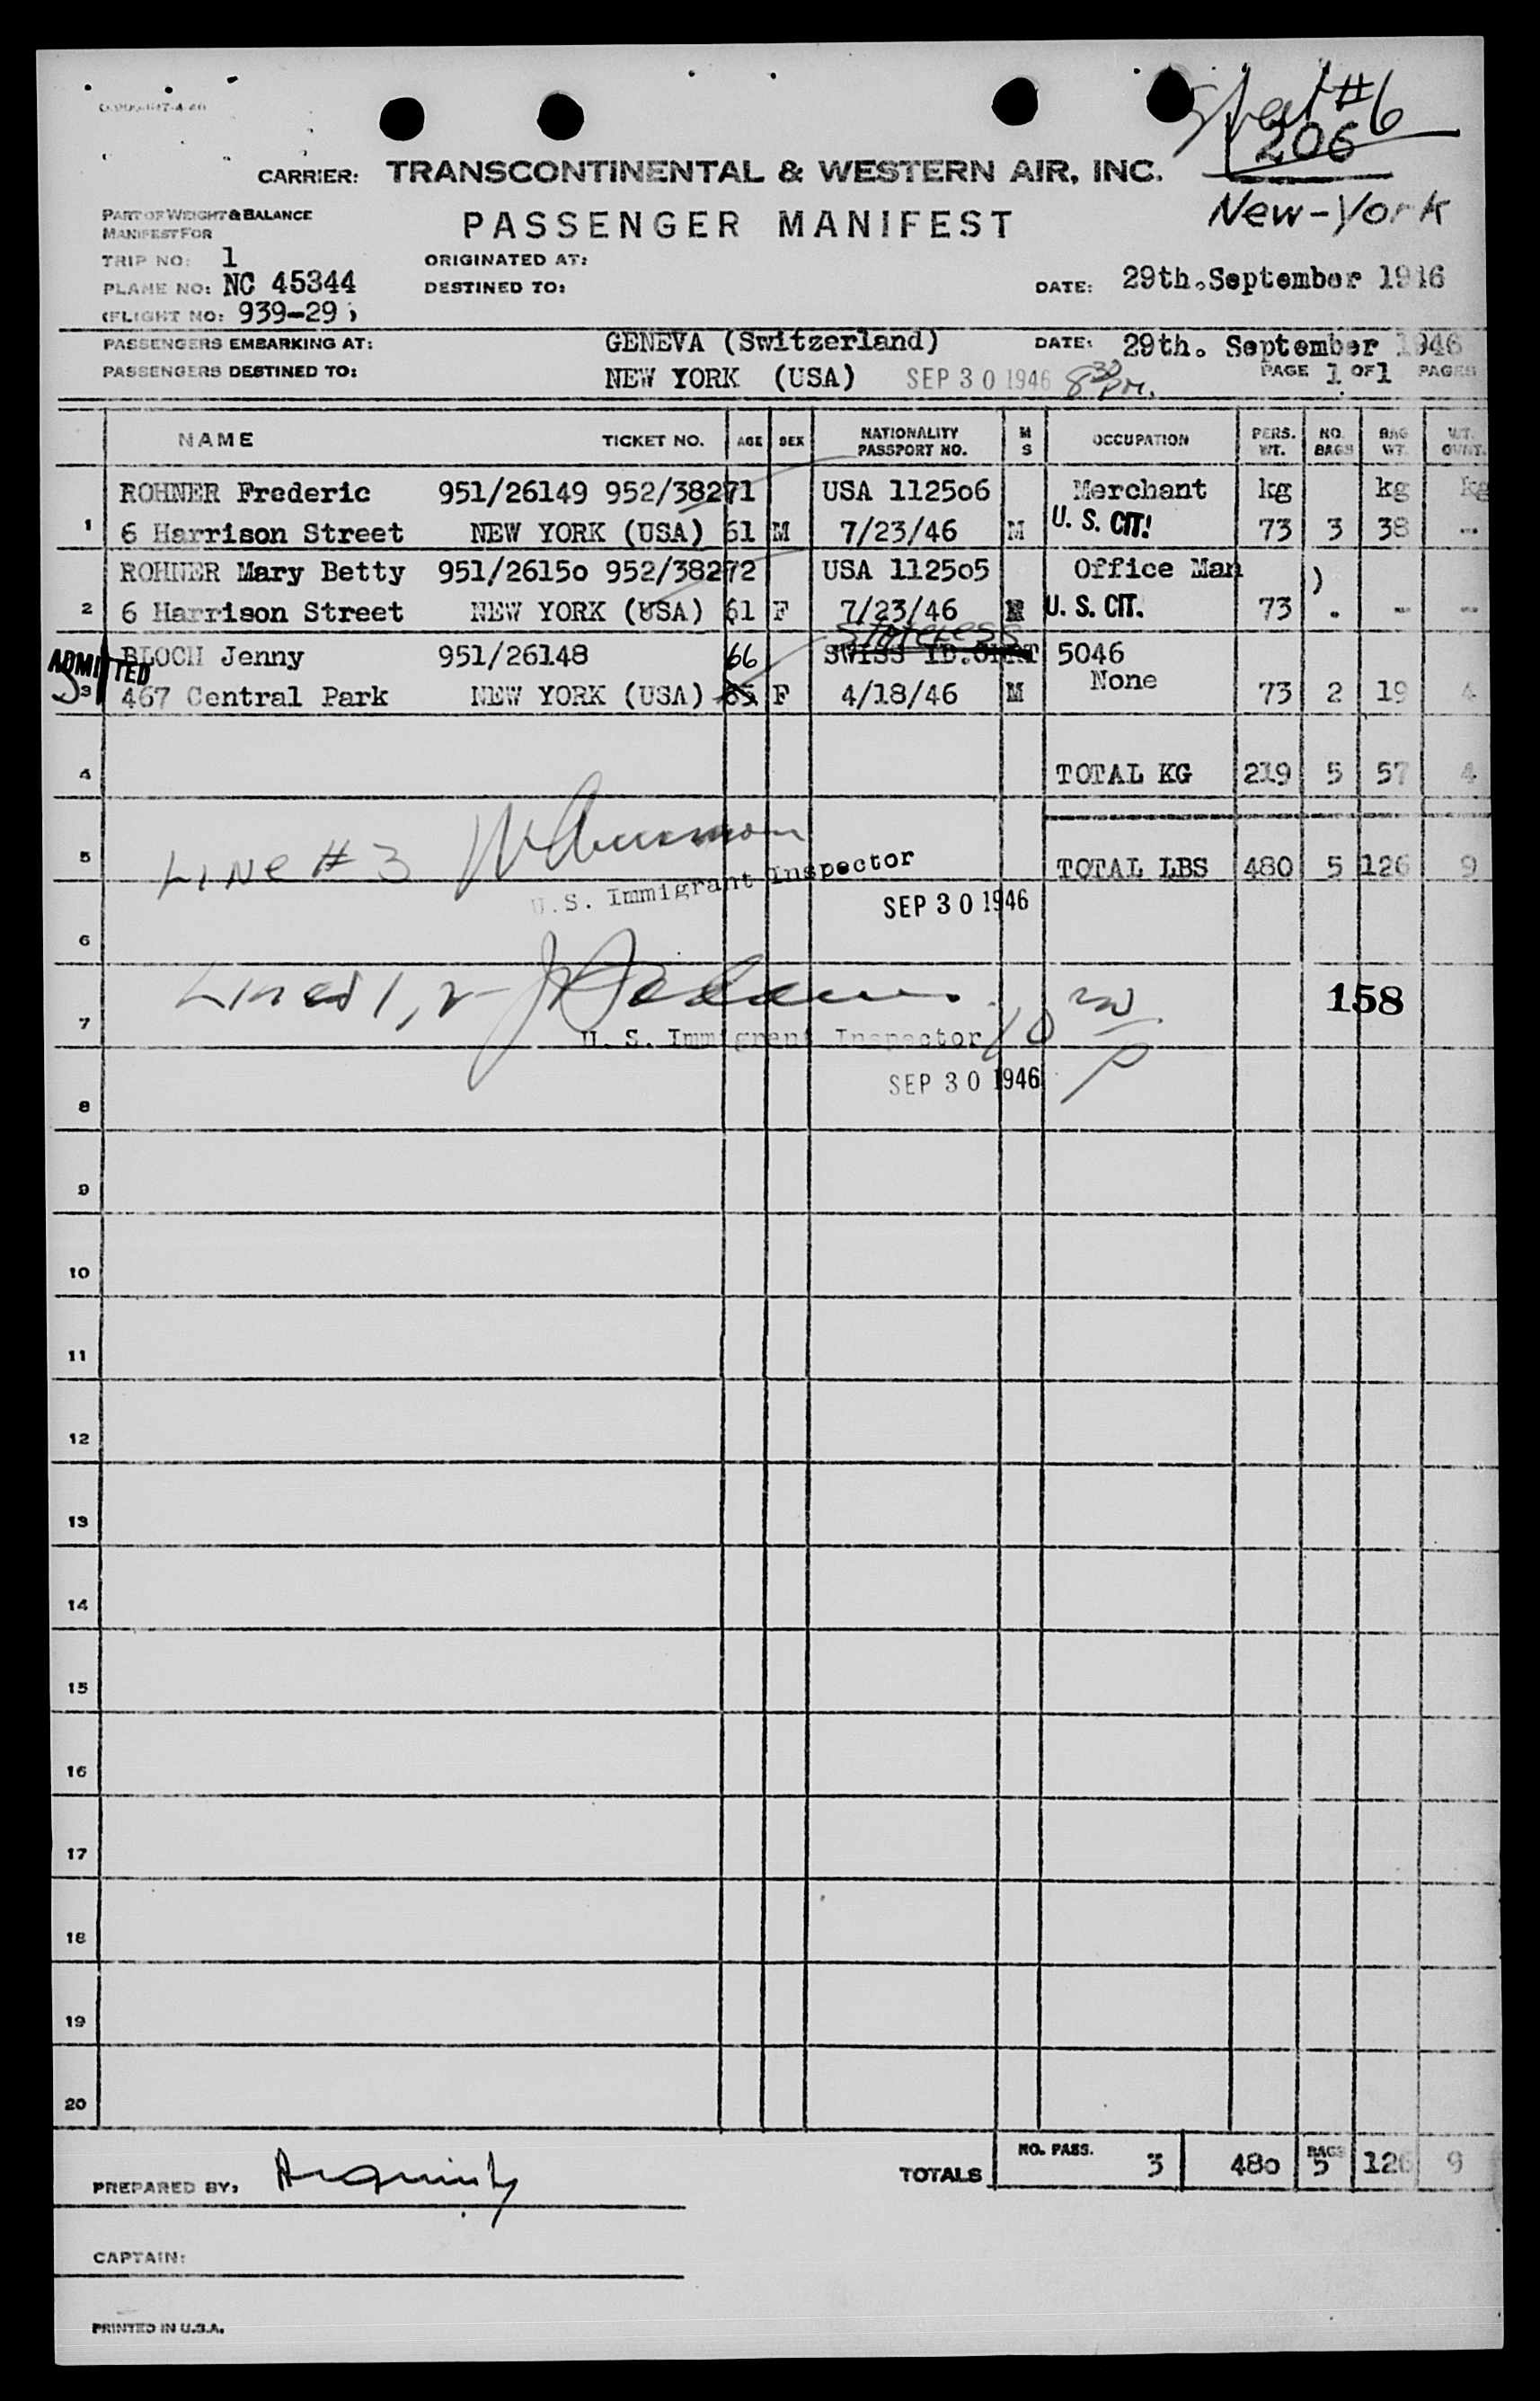 #6
206
New-York
CARRIER: TRANSCONTINENTAL & WESTERN AIR, INC.
PART OF WEIGHT & BALANCE
MANIFEST FOR
PASSENGER MANIFEST
TRIP NO: 1 ORIGINATED AT:
PLANE NO: NC 45344 DESTINED TO: DATE: 29th.September 1946
(FLIGHT NO: 939-29 )
PASSENGERS EMBARKING AT: GENEVA (Switzerland) DATE: 29th. September 1946
PASSENGERS DESTINED TO: NEW YORK (USA) SEP 30 1946 8 30 pm. PAGE 1 OF 1 PAGES
NAME TICKET NO. AGE SEX NATIONALITY PASSPORT NO. M S OCCUPATION PERS. WT. NO. BAGS BAG WT. WT. OVWT.
ROHNER Frederic 951/26149 952/38271 USA 112506 Merchant kg kg kg
1 6 Harrison Street NEW YORK (USA) 61 M 7/23/46 M U. S. CIT. 73 3 38 --
ROHNER Mary Betty 951/26150 952/38272 USA 112505 Office Man )
2 6 Harrison Street NEW YORK (USA) 61 F 7/23/46 M U. S. CIT. 73 . -- --
Stateless
BLOCH Jenny 951/26148 66 SWISS ID.CERT 5046
ADMITTED
3 467 Central Park NEW YORK (USA) 65 F 4/18/46 M None 73 2 19 4
4 TOTAL KG 219 5 57 4
5 LINE # 3 TOTAL LBS 480 5 126 9
U.S. Immigrant Inspector
SEP 30 1946
6
7 Lines 1, 2 10 30 P 158
U. S. Immigrant Inspector
SEP 30 1946
8
9
10
11
12
13
14
15
16
17
18
19
20
PREPARED BY: TOTALS NO. PASS. 3 480 BAGS 5 126 9
CAPTAIN:
PRINTED IN U.S.A.